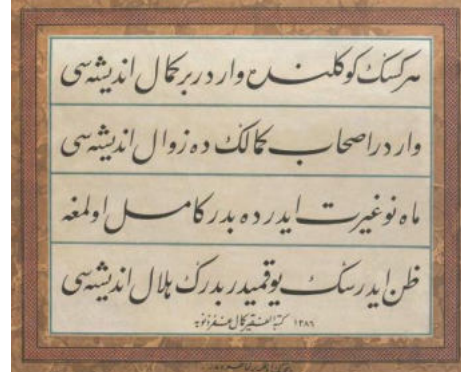 هركسك كوكلنده واردر بر كمال انديشه‌سى
واردر اصحاب كمالك ده زوال انديشه‌سى
ماه نو غيرت ايدر ده بدر كامل اولمغه
ظن ايدرسك يوقميدر بدرك هلال انديشه‌سى
١٣٨٦ كتبه الفقير كمال